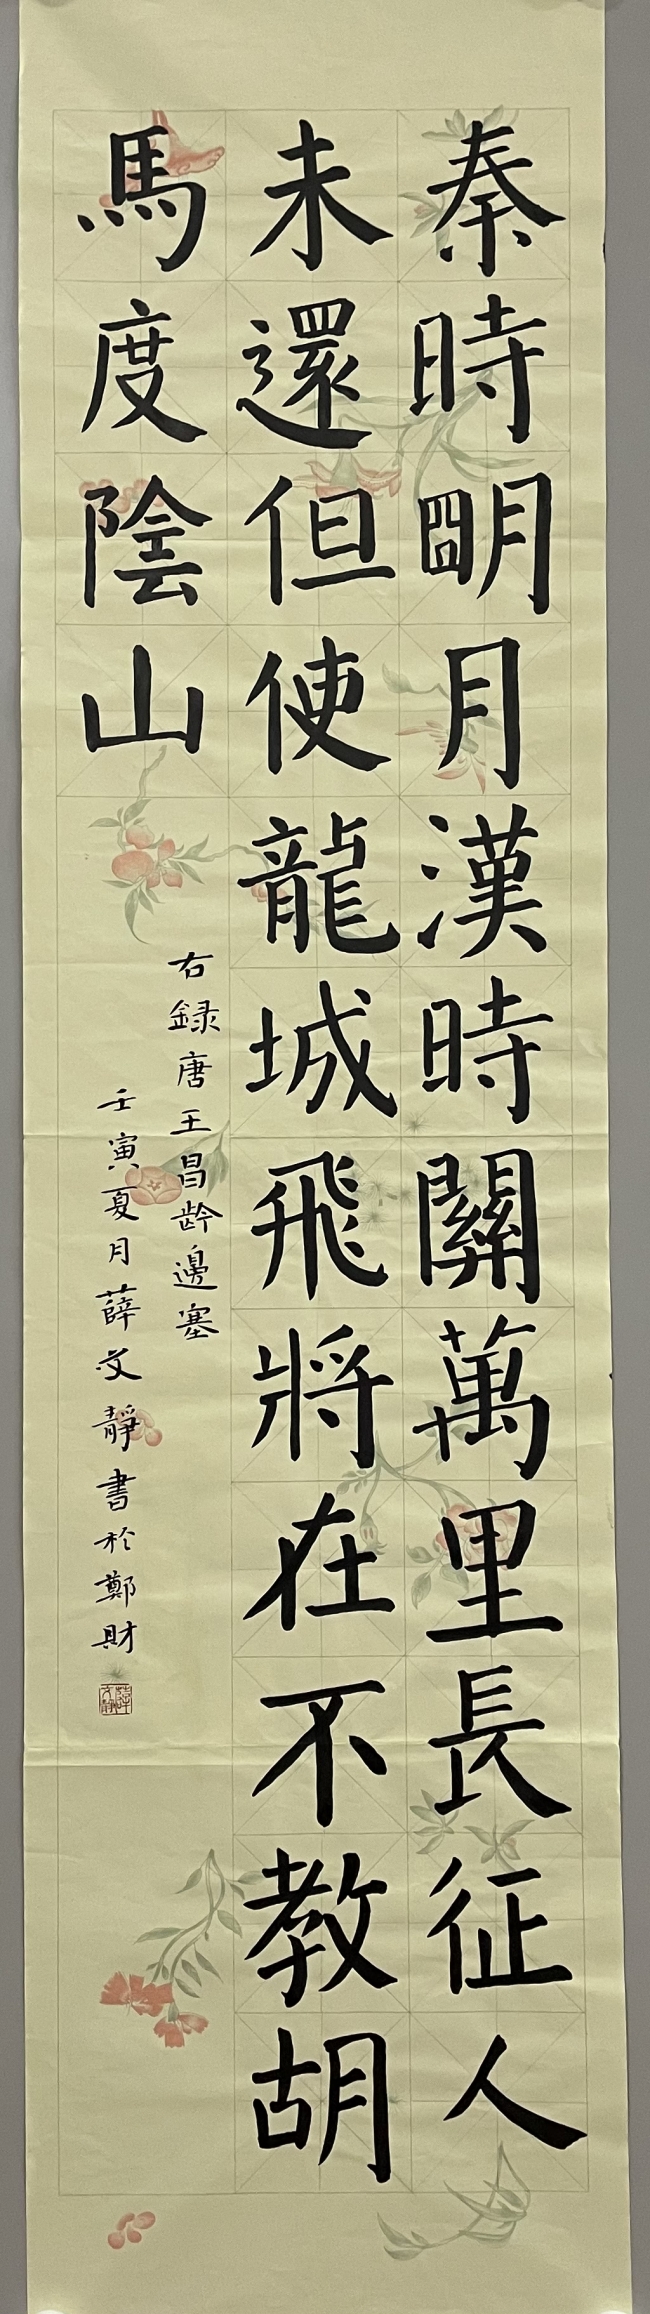 秦時明月漢時關萬里長征人
未還但使龍城飛將在不教胡
馬度陰山
右録唐王昌龄邊塞
壬寅夏月薛文靜書於鄭財
薛文靜